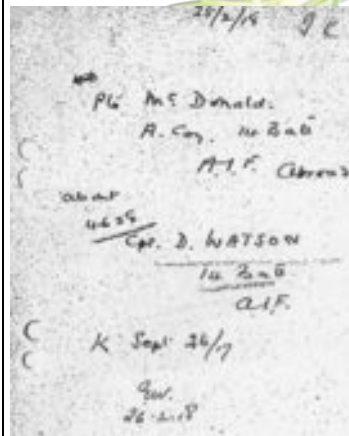 25/2/18
Pte Mc Donald.
A. Coy. 14 Batt
A.I.F. Abroad
about
4628
Cpl. D. WATSON
14 Batt
A.I.F.
K Sept 26/17
26.2.18